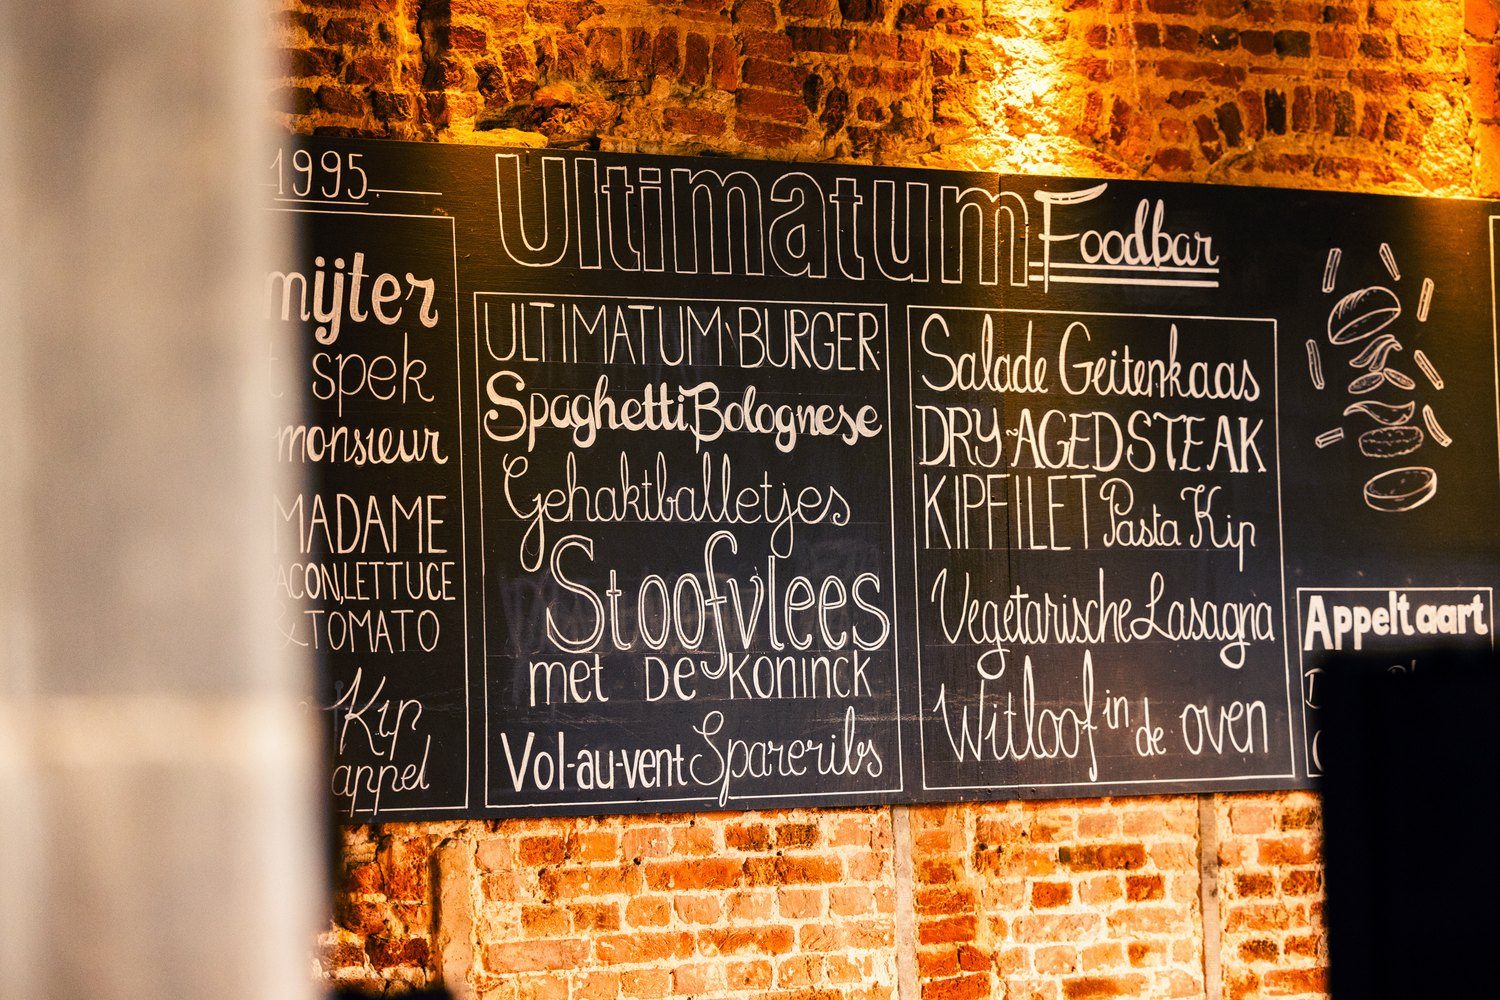 1995.
spek
monsieur
MADAME
LETTUCE
& TOMATO
Kip
appel
Ultimatum Foodbar
ULTIMATUM BURGER
Spaghetti Bolognese
Gehaktballetjes
Stoofvlees
met De Koninck
Vol-au-vent Spareribs
Salade Geitenkaas
DRY-AGED STEAK
KIPFILET Pasta Kip
Vegetarische Lasagna
Witloof in de oven
Appeltaart